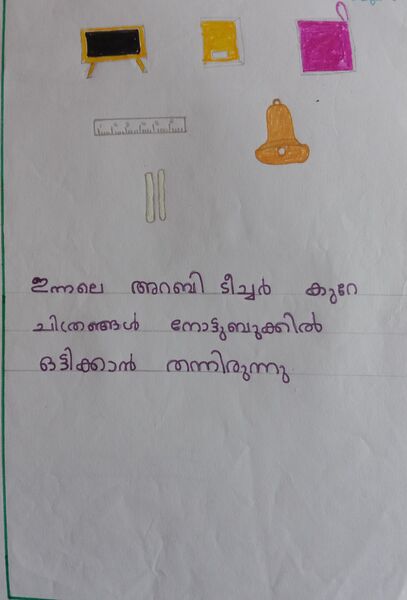 ഇന്നലെ അറബി ടീച്ചർ കുറേ
ചിത്രങ്ങൾ നോട്ടുബുക്കിൽ
ഒട്ടിക്കാൻ തന്നിരുന്നു.